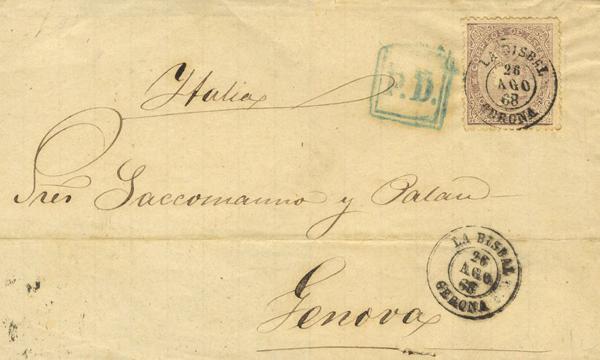 LA BISBAL
26
AGO
68
GERONA
P.D.
Italia
Sres Saccomanno y Palau
LA BISBAL
26
AGO
68
GERONA
Genova